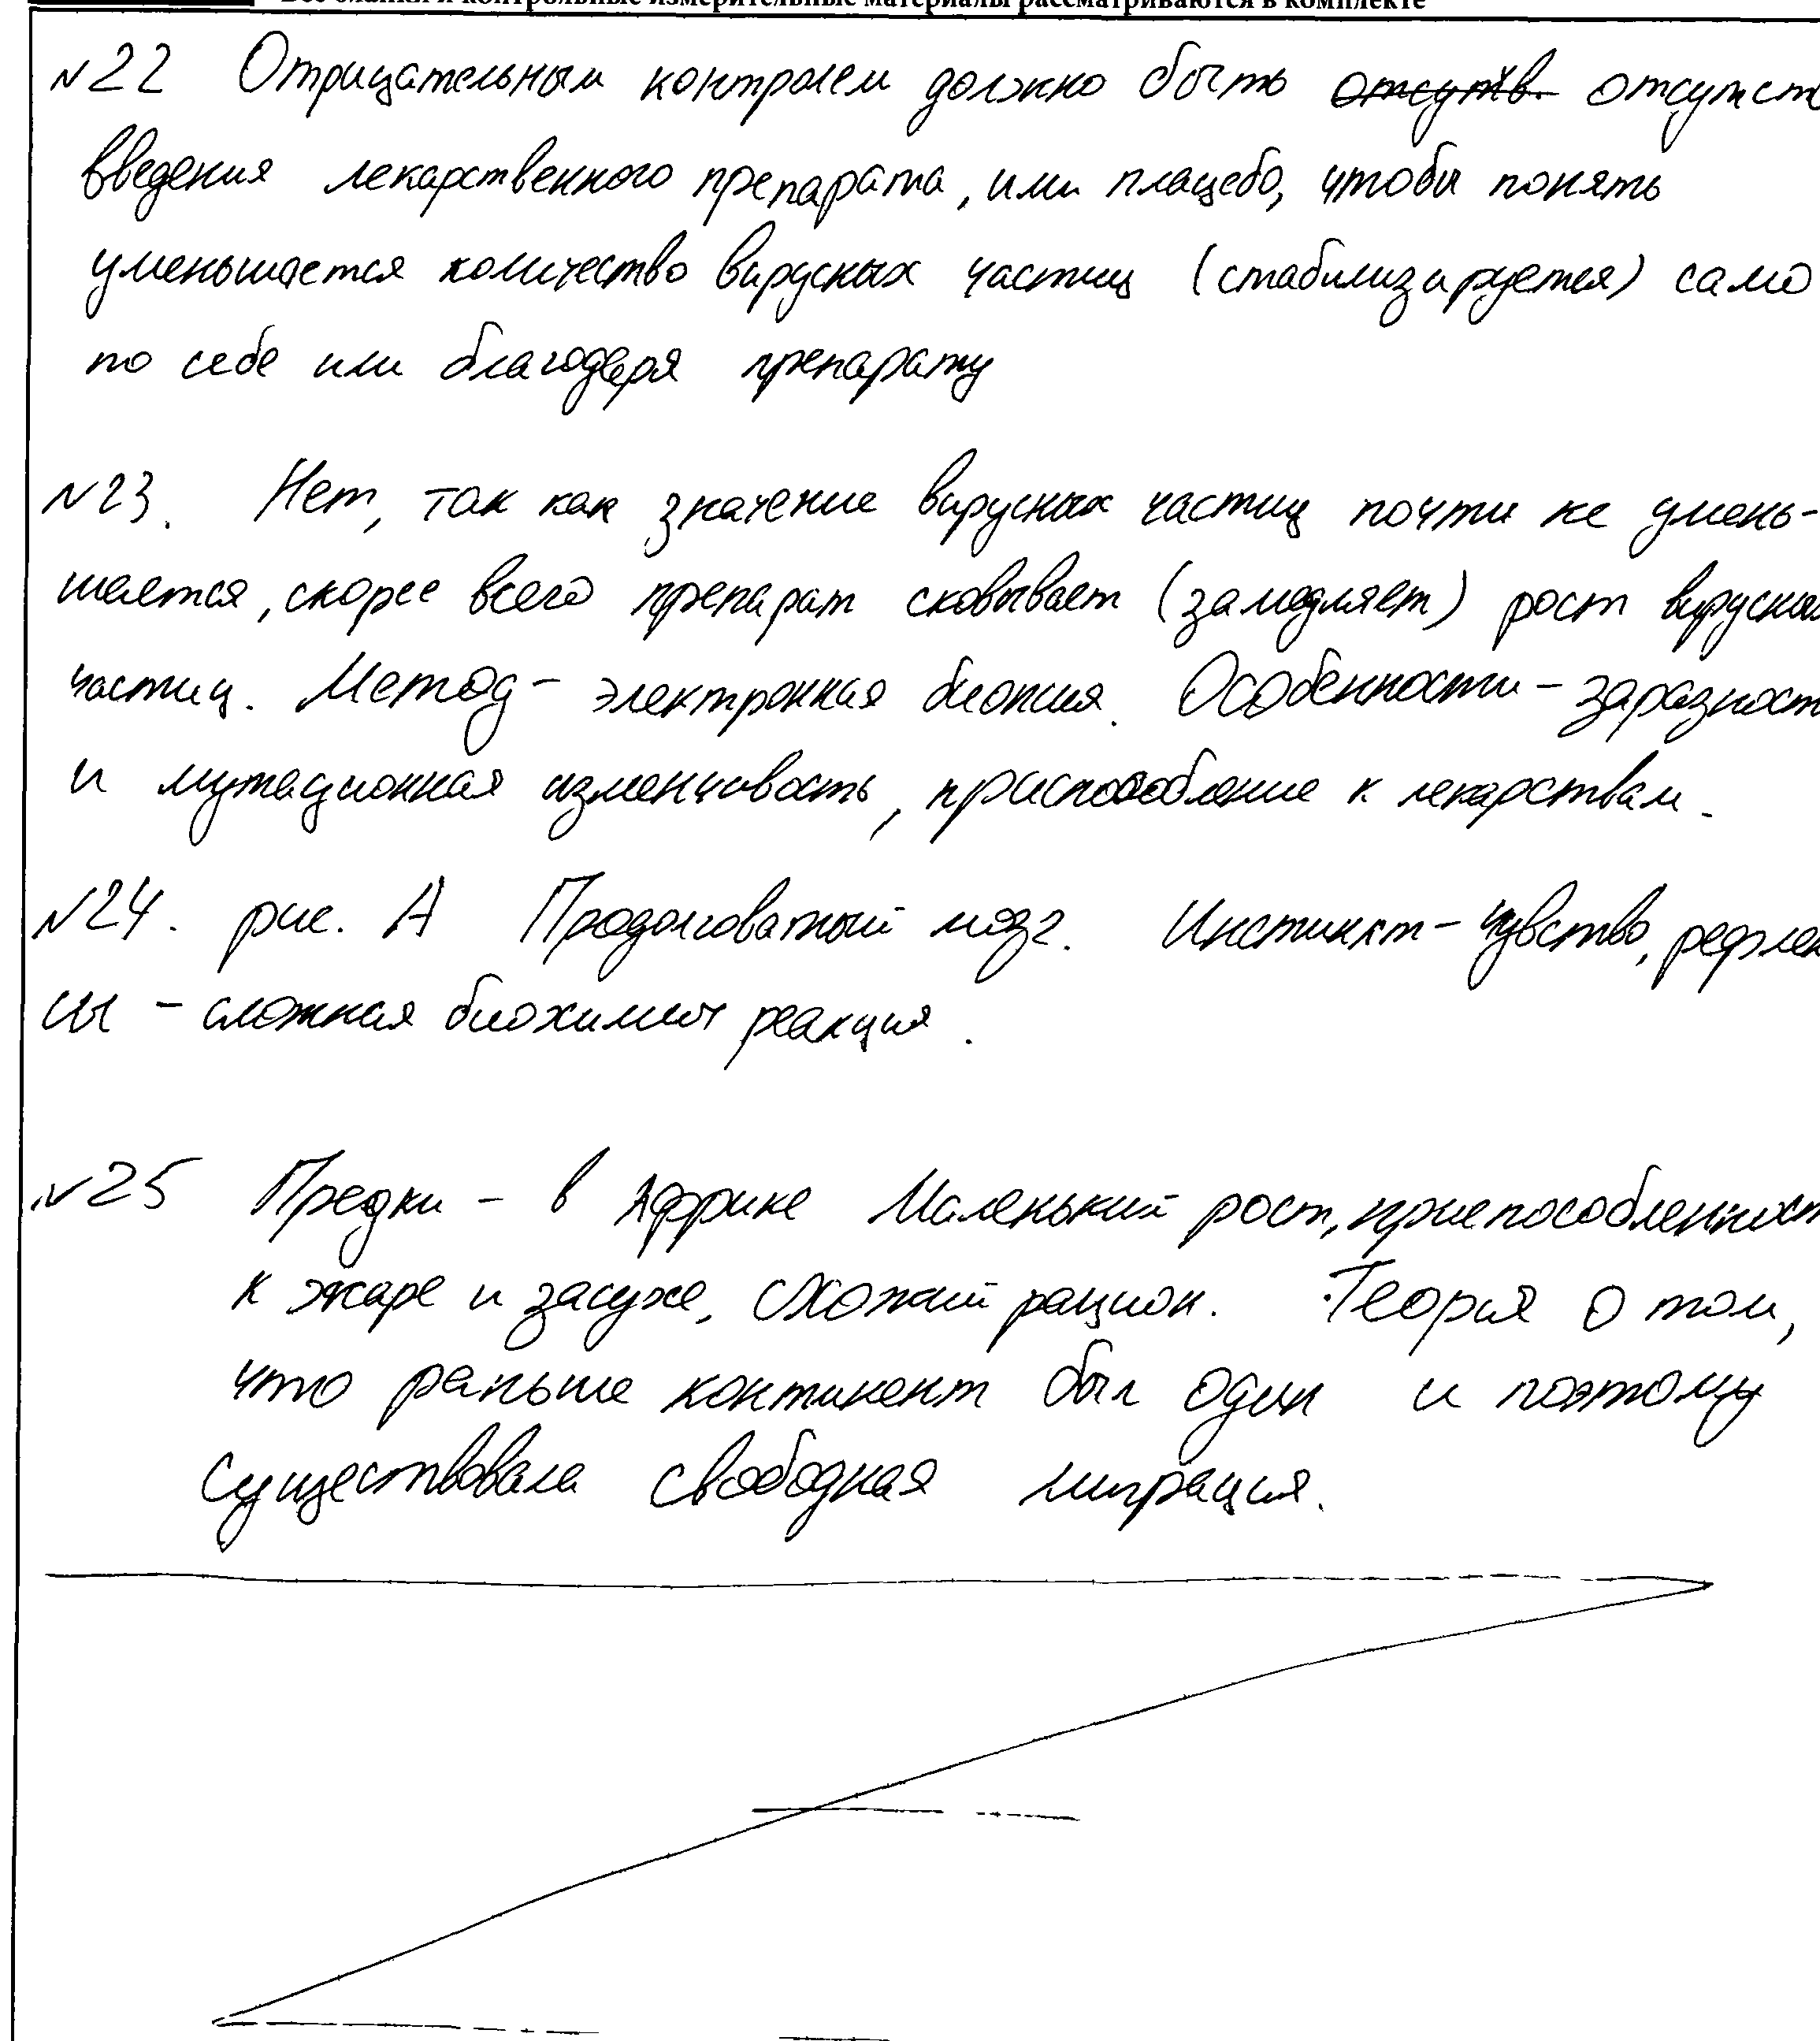 Все бланки и контрольные измерительные материалы рассматриваются в комплекте
№22 Отрицательным контролем должно быть отсутств. отсутст
введения лекарственного препарата, или плацебо, чтобы понять
уменьшается количество вирусных частиц (стабилизируется) само
по себе или благодаря препарату
№23. Нет, так как значение вирусных частиц почти не умень-
шается, скорее всего препарат сковывает (замедляет) рост вирусных
частиц. Метод - электронная биопсия. Особенности - заразност
и мутационная изменчивость, приспособление к лекарствам.
№24. рис. А Продолговатый мозг. Инстинкт - чувство, рефлек
сы - сложная биохимич реакция.
№25 Предки - в Африке Маленький рост, приспособленност
к жаре и засухе, схожий рацион. Теория о том,
что раньше континент был один и поэтому
существовала свободная миграция.